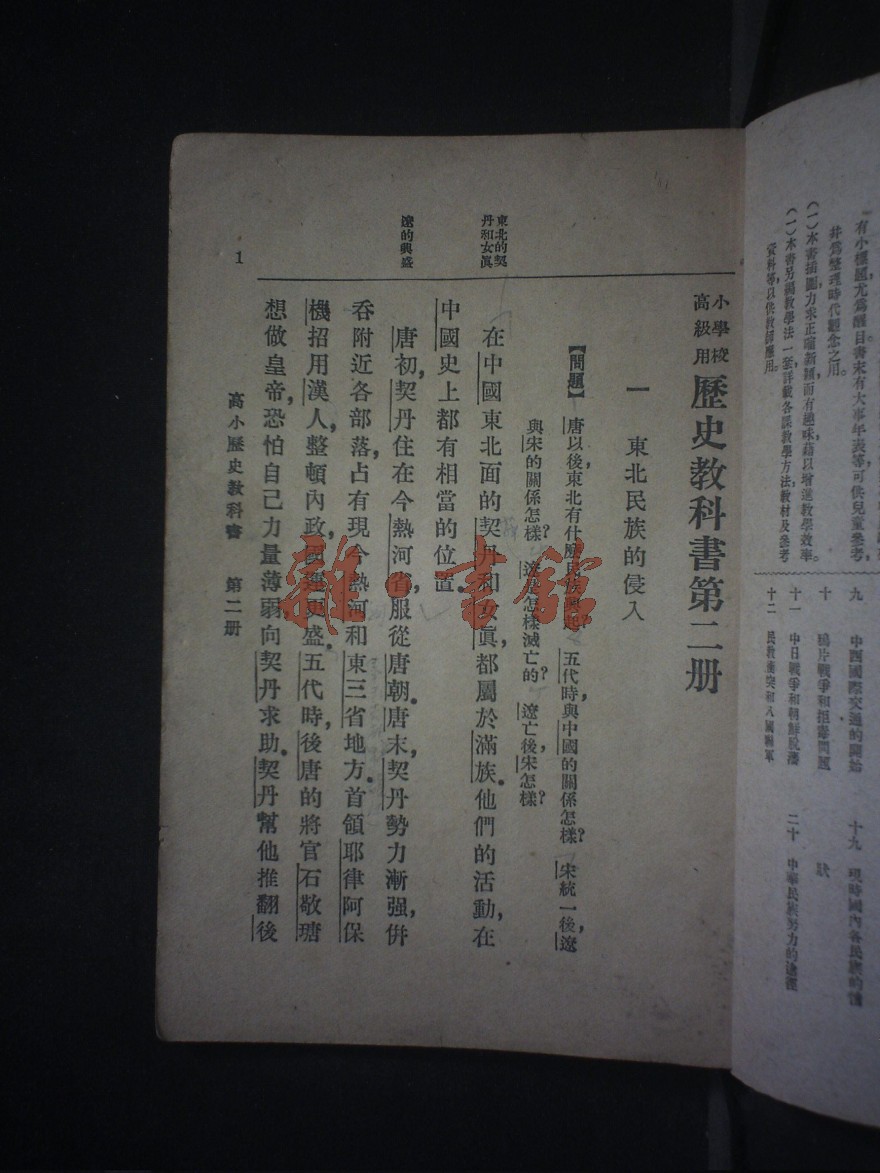 有小標題，尤爲醒目，書末有大事年表等，可供兒童參考，
幷爲整理時代觀念之用。
（一）本書插圖力求正確新穎而有趣味，藉以增進教學效率。
（一）本書另編教學法一套，詳載各課教學方法教材及參考
資料等，以供教師應用。
九　中西國際交通的開始
十　鴉片戰爭和拒毒問題
十一　中日戰爭和朝鮮脫藩
十二　民教衝突和八國聯軍
十九　現時國內各民族的
狀
二十　中華民族努力的途徑
小學校
高級用
歷史教科書第二册
一　東北民族的侵入
【問題】唐以後，東北有什麽民族興起？五代時，與中國的關係怎樣？宋統一後，遼
與宋的關係怎樣？遼是怎樣滅亡的？遼亡後，宋怎樣？
東北的契
丹和女眞
在中國東北面的契丹和女眞，都屬於滿族。他們的活動，在
中國史上都有相當的位置。
遼的興盛
唐初，契丹住在今熱河省，服從唐朝。唐末，契丹勢力漸强，併
吞附近各部落，占有現今熱河和東三省地方。首領耶律阿保
機招用漢人，整頓內政，國運更盛。五代時，後唐的將官石敬瑭
想做皇帝，恐怕自己力量薄弱，向契丹求助。契丹幫他推翻後
高小歷史教科書　第二册
1
雜·書館